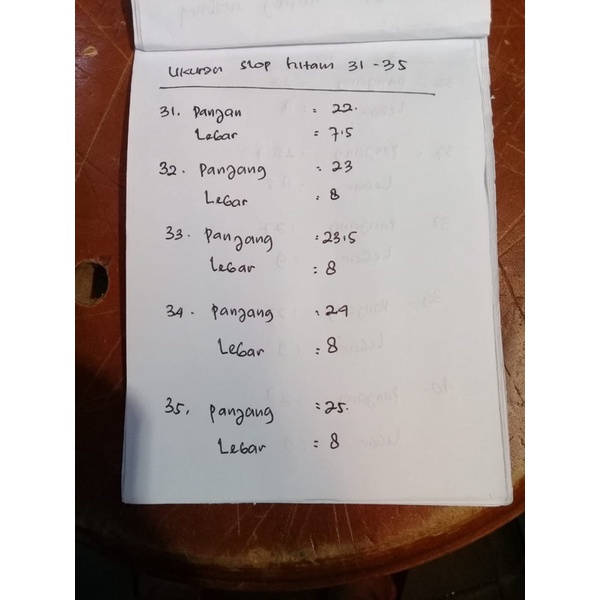 Ukuran slop hitam 31 - 35
31. Panjan : 22.
Lebar : 7.5
32. Panjang : 23
Lebar : 8
33. Panjang : 23.5
Lebar : 8
34. Panjang : 24
Lebar : 8
35. Panjang : 25.
Lebar : 8